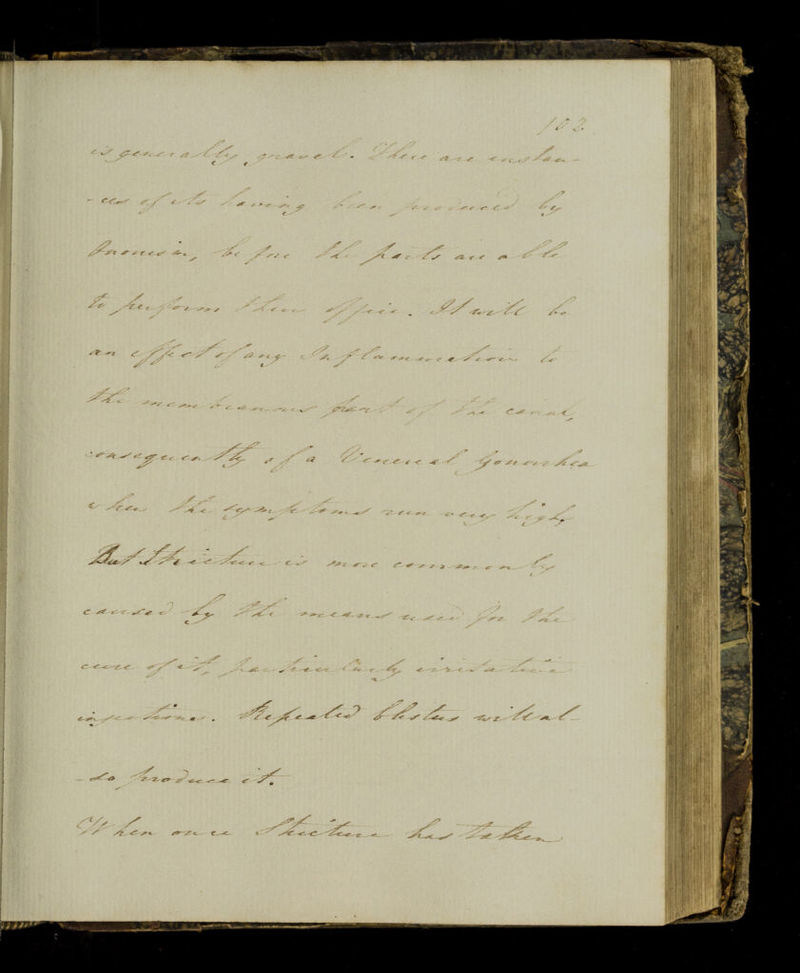 102
is generally gravel. There are instan-
-ces of its having been produced by
Onanism, before the parts are able
to perform their office. It will be
an effect of any Inflammation to
the membranous part of the canal,
consequently of a Venereal Gonorrhea
when the symptoms run very high,
But Stricture is more commonly
caused by the means used for the
cure of it, particularly irritative
injections. Repeated Clisters will al-
-so produce it.
When once Stricture has taken